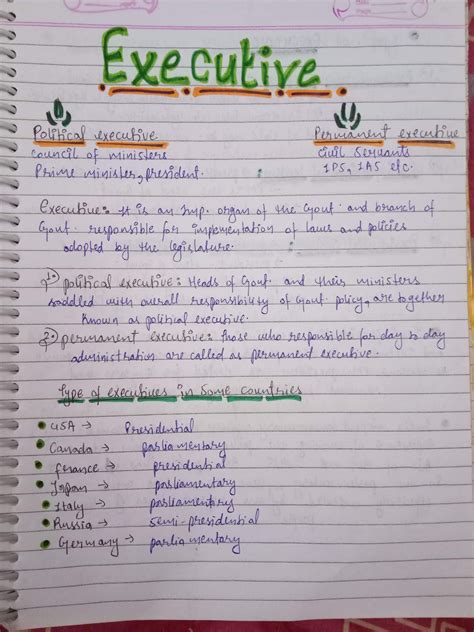 Executive
Political executive
Council of ministers
Prime minister, president.
Permanent executive
Civil Servants
IPS, IAS etc.
Executive: It is an Imp. organ of the Govt. and branch of
Govt. responsible for implementation of laws and policies
adopted by the legislature.
1. political executive: Heads of Govt. and their ministers
saddled with overall responsibility of Govt policy, are together
known as political executive.
2. permanent executive: Those who responsible for day to day
administration are called as permanent executive.
Type of executives in Some countries
USA → Presidential
Canada → parliamentary
france → presidential
Japan → parliamentary
Italy → parliamentary
Russia → semi-presidential
Germany → parliamentary